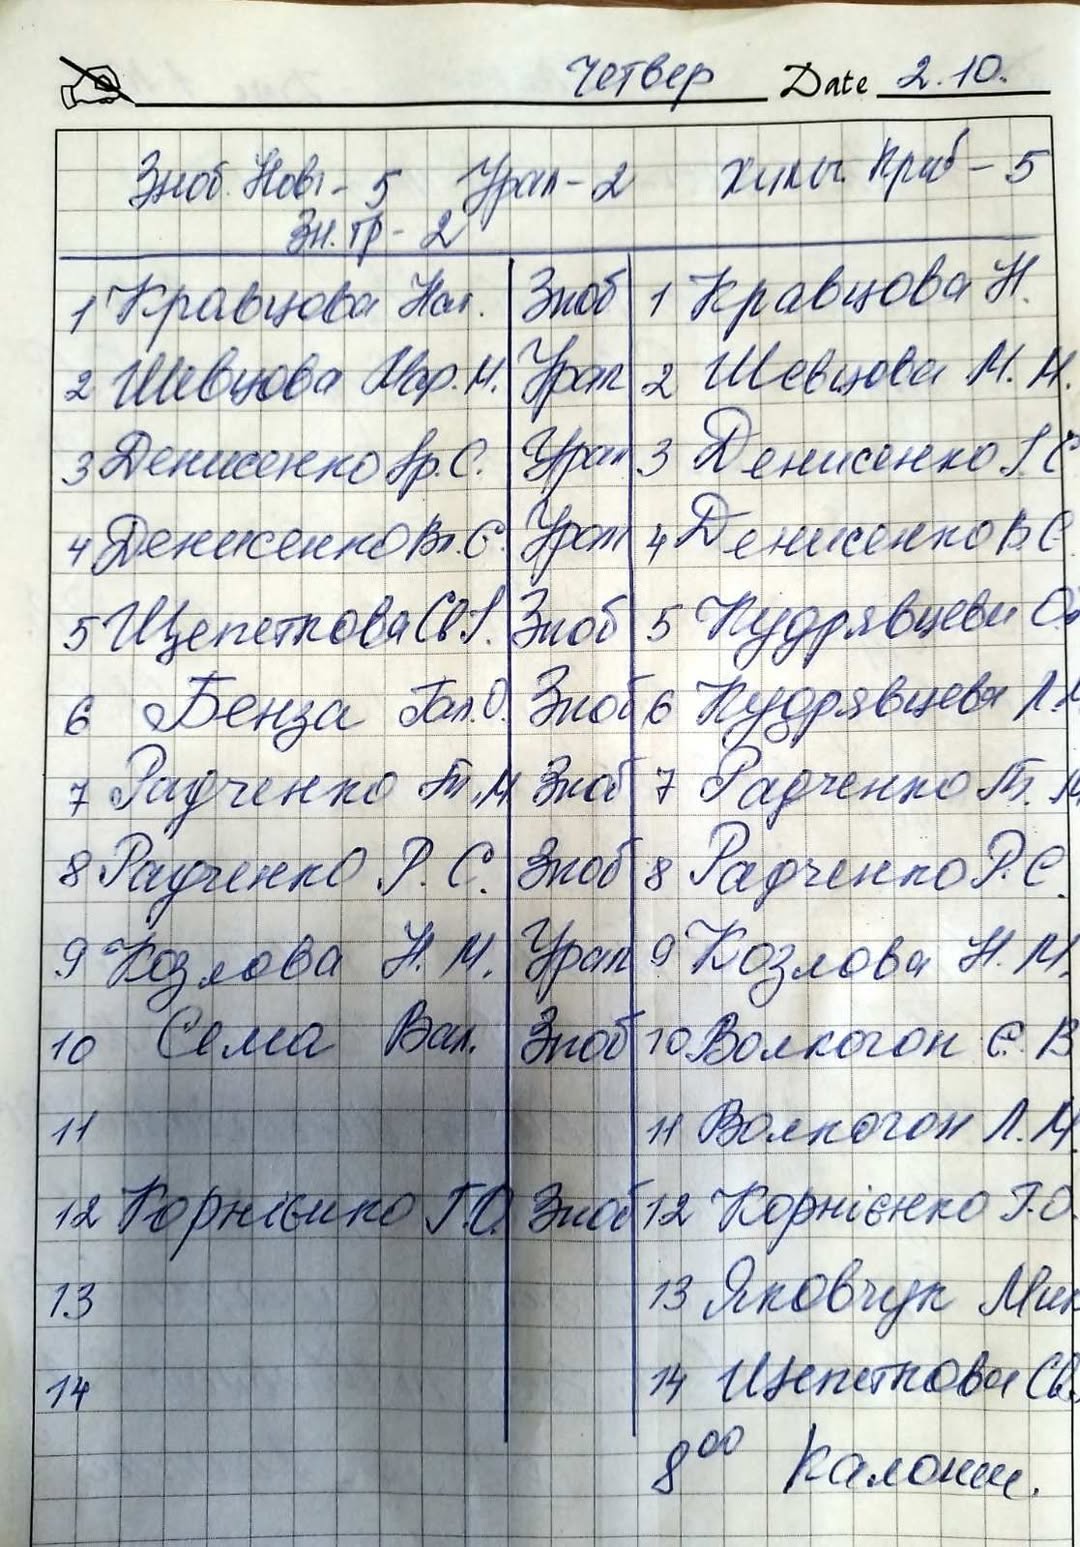 Четвер Date 2.10.
Зноб. Нов - 5 Урал - 2 Хильч. Краб - 5
Зн. Тр - 2
1 Кравцова Нат. Зноб 1 Кравцова Н.
2 Шевцова Мар. М. Урал 2 Шевцова М. М.
3 Денисенко Ір. С. Урал 3 Денисенко І С
4 Денисенко Вл. С. Урал 4 Денисенко В С
5 Щепеткова Св І. Зноб 5 Кудрявцева
6 Бенза Гал. О. Зноб 6 Кудрявцева Л.
7 Радченко Т. М Зноб 7 Радченко Т. М
8 Радченко Р. С. Зноб 8 Радченко Р. С.
9 Козлова Н. М. Урал 9 Козлова Н. М.
10 Сема Вал. Зноб 10 Волкогон Є. В
11 11 Волкогон Л. М
12 Корнієнко Г. О. Зноб 12 Корнієнко Г. О.
13 13 Яковчук Мик
14 14 Щепеткова Св.
8 00